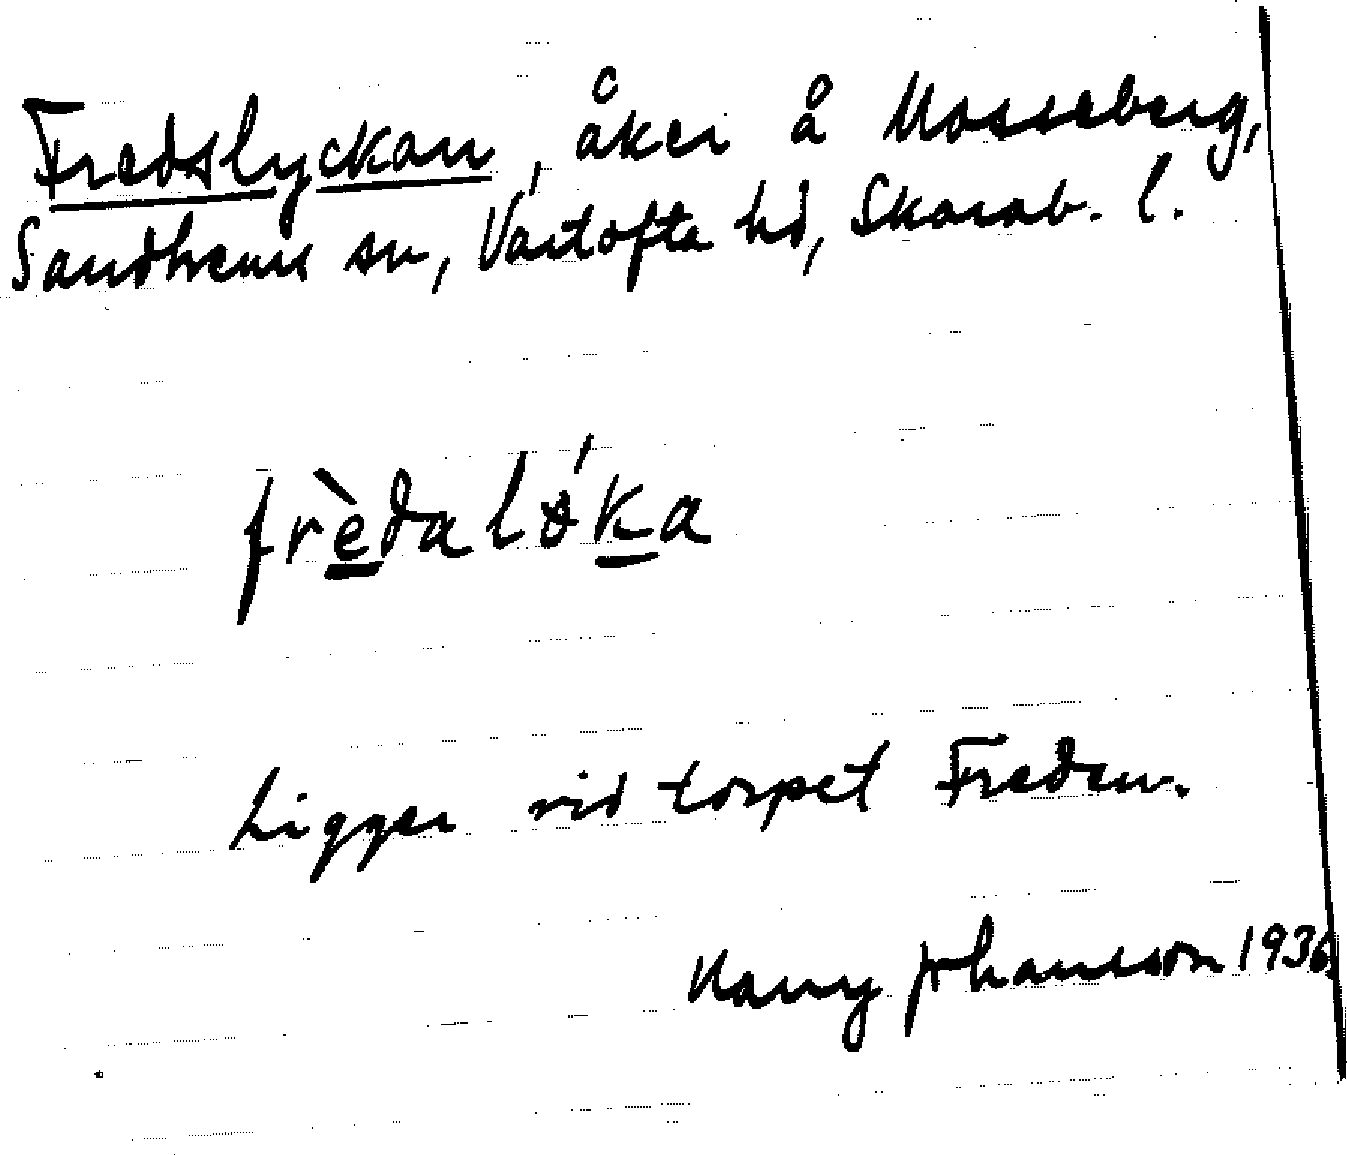 Fredslyckan, åker å Mosseberg,
Sandhems sn, Vartofta hd, Skarab. l.
frèdaló̵ka
Ligger vid torpet Freden.
Harry Johansson 1936.